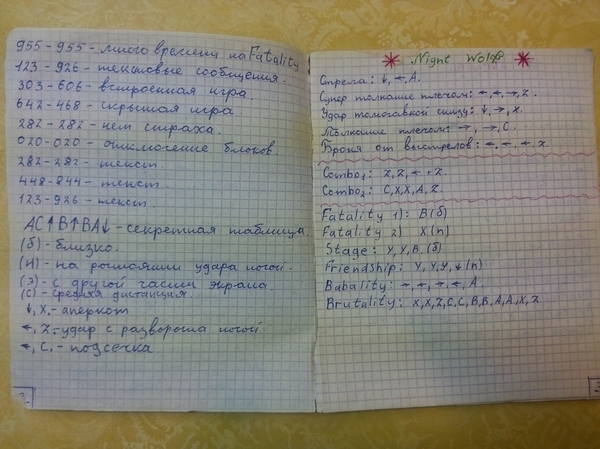 955-955-много времени на Fatality
123-926-текстовые сообщения.
303-606-встроенная игра.
642-468-скрытая игра
282-282-нет страха.
020-020-отключение блоков.
282-282-текст.
448-844-текст.
123-926-текст.
AC↑B↑BA↓-секретная таблица.
(б)-близко.
(н)-на растоянии удара ногой.
(э)-с другой части экрана.
(с)-средняя дистанция.
↓, X.-аперкот
←, Z.-удар с разворота ногой
←, C.-подсечка.
Night Wolf
Стрела: ↓, ←, A.
Супер толкание плечом: ←, ←, →, Z.
Удар томогавкой снизу: ↓, →, X.
Толкание плечом: →, →, C.
Броня от выстрелов: ←, ←, ←, Z
Combo1: Z, Z, ← + Z.
Combo2: C, X, X, A, Z.
Fatality 1): B(б)
Fatality 2) X(п)
Stage: Y, Y, B, (б)
Friendship: Y, Y, Y, ↓ (п)
Babality: →, ←, →, ←, A.
Brutality: X, X, Z, C, C, B, B, A, A, X, Z